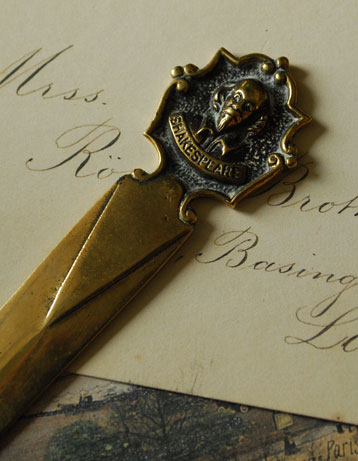 Mrss.
SHAKESPEARE
Broth
Basing
Lo
Paris